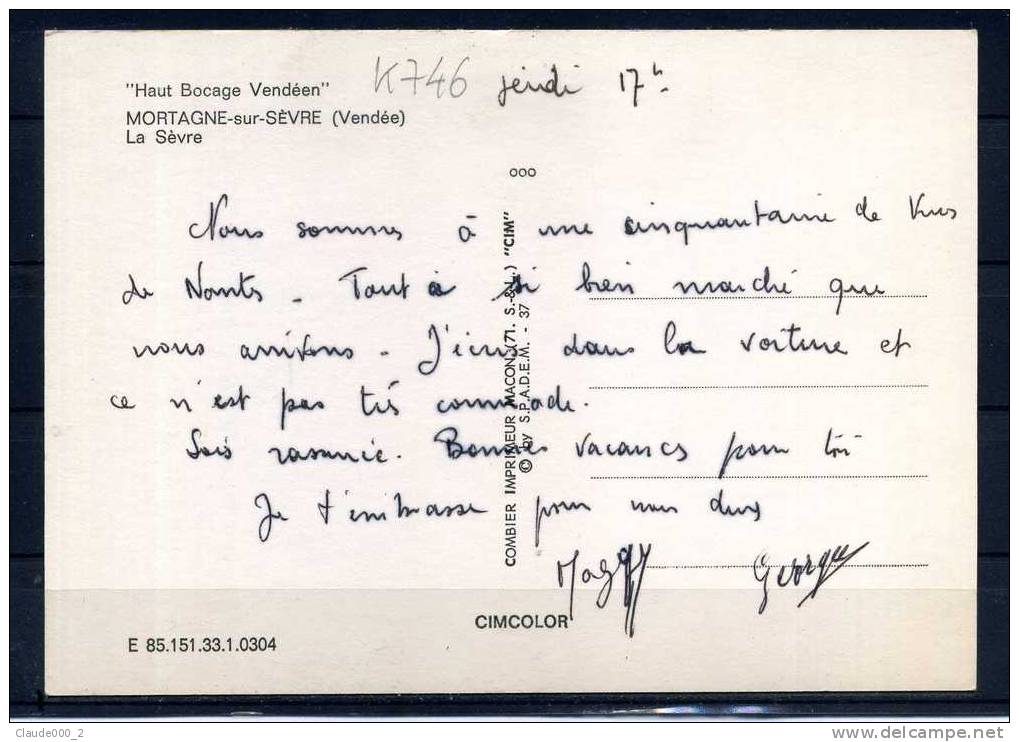 K746 jeudi 17h
"Haut Bocage Vendéen"
MORTAGNE-sur-SÈVRE (Vendée)
La Sèvre
ooo
Nous sommes à une cinquantaine de Kms
de Nantes. Tout a si bien marché que
nous arrivons. J'écris dans la voiture et
ce n'est pas très commode.
Sois rassurée. Bonnes vacances pour toi
Je t'embrasse pour nous deux
Maggy Georges
COMBIER IMPRIMEUR MACON (71. S.-&-L.) "CIM"
© by S.P.A.D.E.M. - 37
CIMCOLOR
E 85.151.33.1.0304
Claude000_2
www.delcampe.net